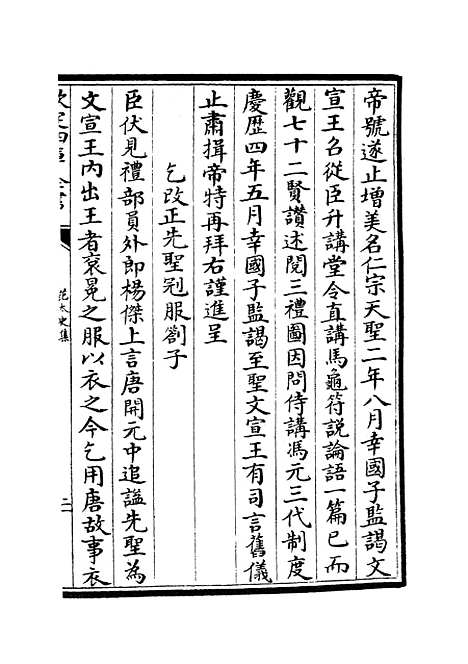 帝號遂止增美名仁宗天聖二年八月幸國子監謁文
宣王名從臣升講堂令直講馬龜符說論語一篇已而
觀七十二賢讚述閱三禮圖因問侍講馮元三代制度
慶歷四年五月幸國子監謁至聖文宣王有司言舊儀
止肅揖帝特再拜右謹進呈
乞改正先聖冠服劄子
臣伏見禮部員外郎楊傑上言唐開元中追諡先聖為
文宣王內出王者衮冕之服以衣之今乞用唐故事衣
欽定四庫全書
范太史集
二